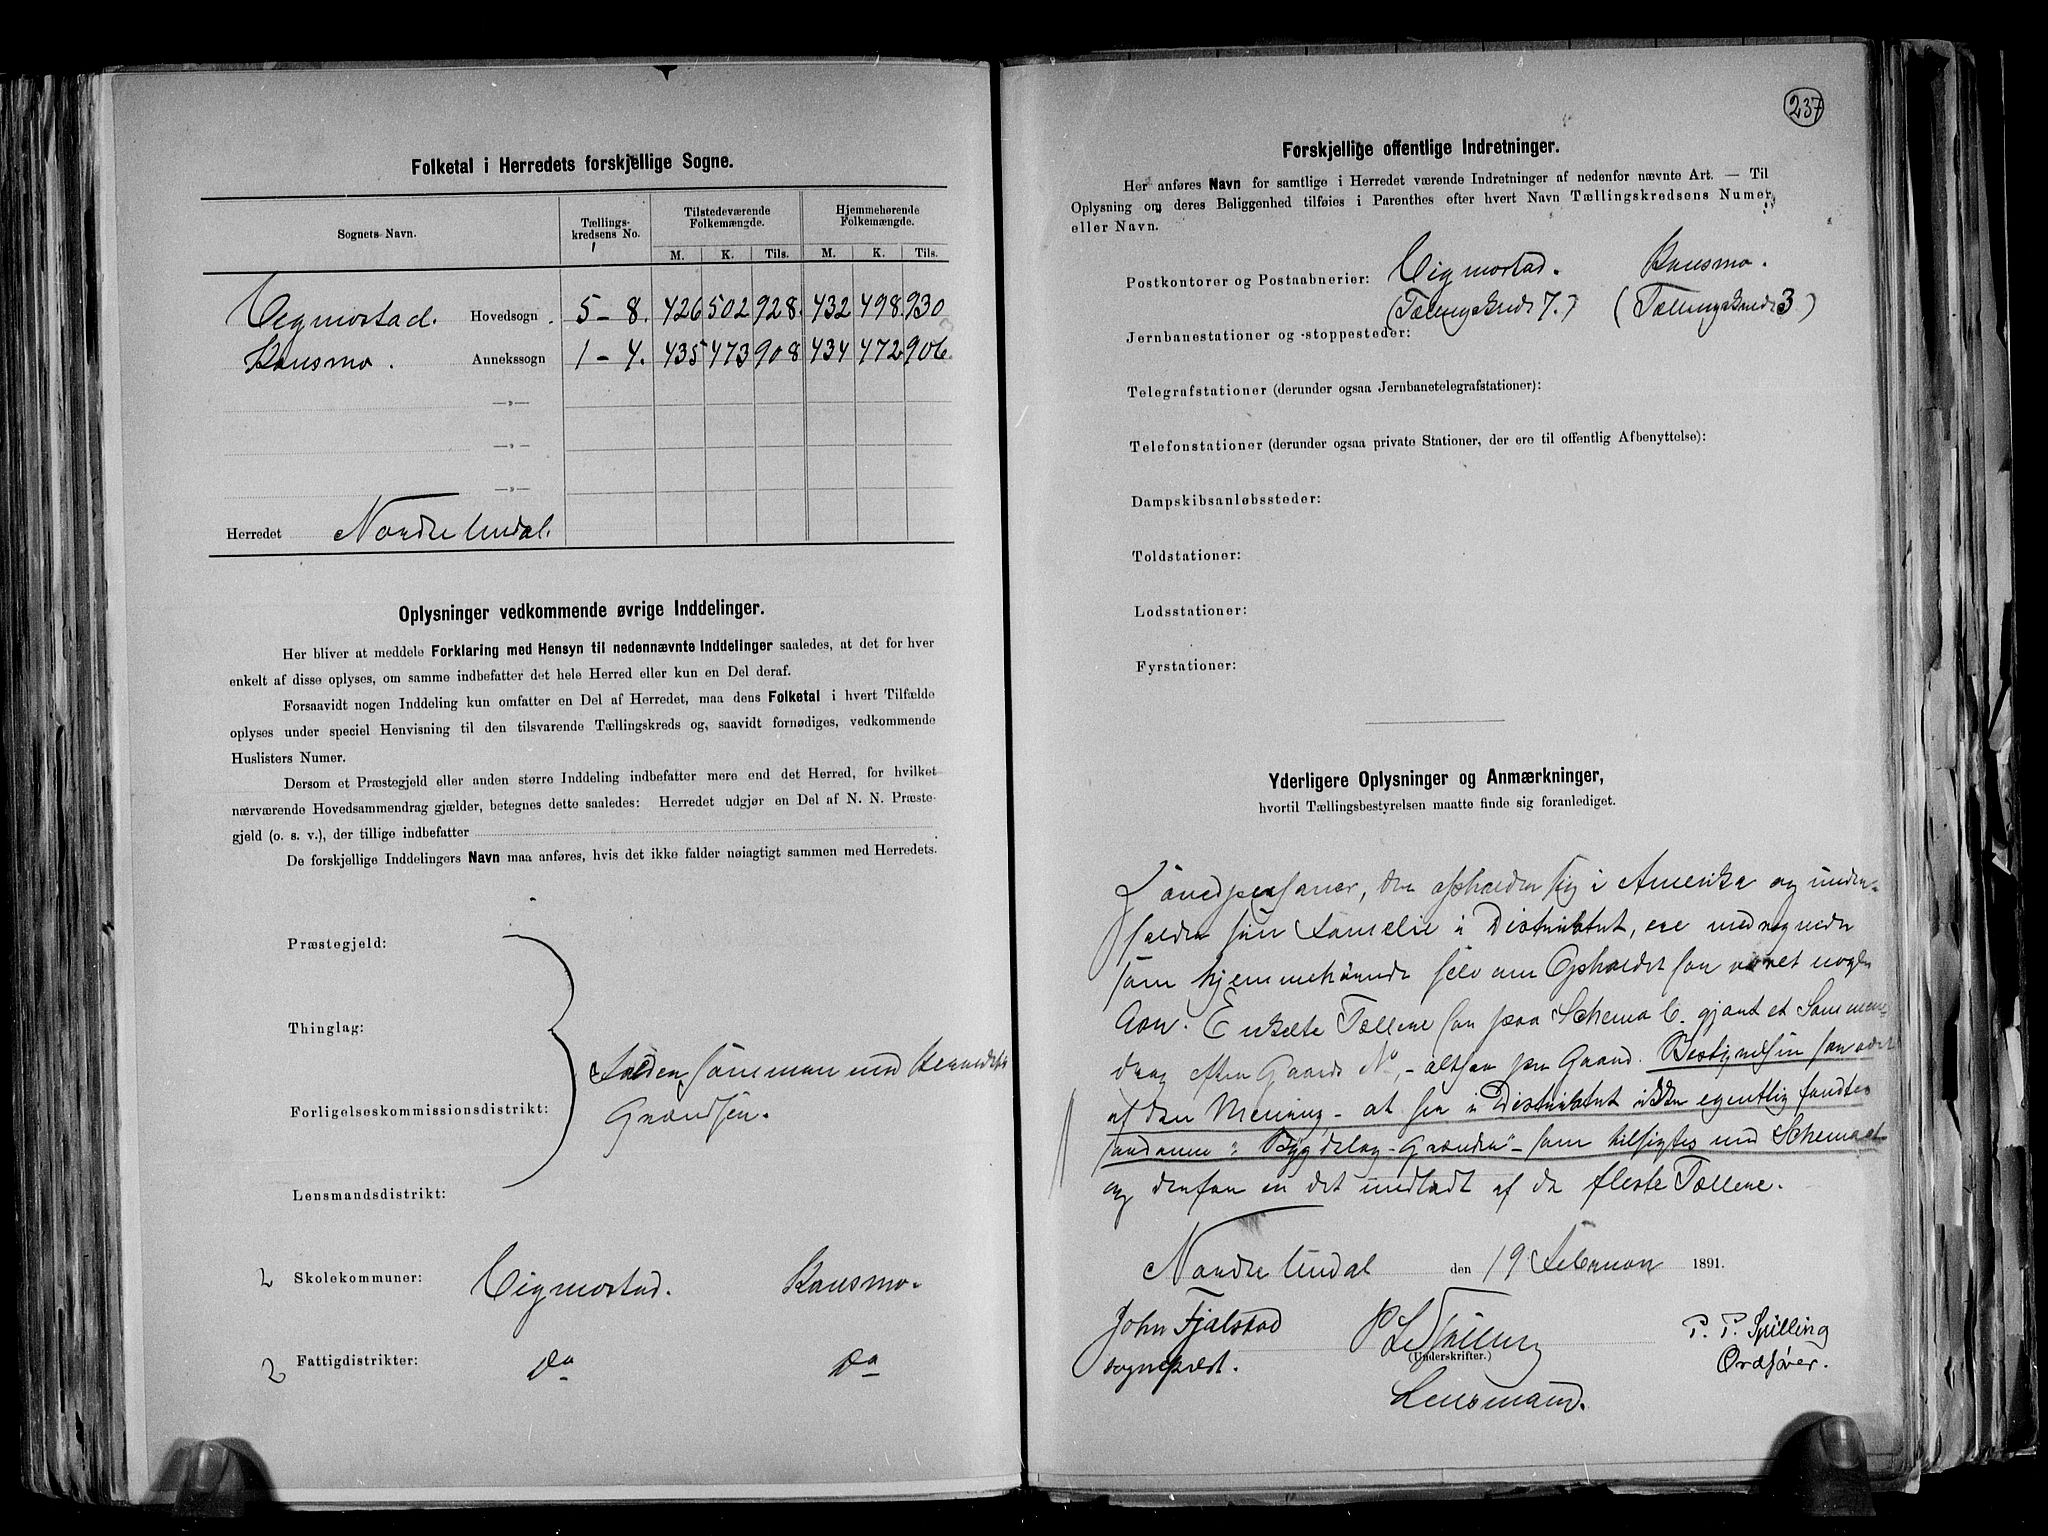 Folketal i Herredets forskjellige Sogne.
Sognets Navn. Tællings-kredsens No. Tilstedeværende Folkemængde. Hjemmehørende Folkemængde.
M. K. Tils. M. K. Tils.
Vigmostad. Hovedsogn 5-8. 426 502 928. 432 498 930
Konsmo. Annekssogn 1-4. 435 473 908 434 472 906.
—„—
—„—
—„—
Herredet Nordre Undal.
Oplysninger vedkommende øvrige Inddelinger.
Her bliver at meddele Forklaring med Hensyn til nedennævnte Inddelinger saaledes, at det for hver
enkelt af disse oplyses, om samme indbefatter det hele Herred eller kun en Del deraf.
Forsaavidt nogen Inddeling kun omfatter en Del af Herredet, maa dens Folketal i hvert Tilfælde
oplyses under speciel Henvisning til den tilsvarende Tællingskreds og, saavidt fornødiges, vedkommende
Huslisters Numer.
Dersom et Præstegjeld eller anden større Inddeling indbefatter mere end det Herred, for hvilket
nærværende Hovedsammendrag gjælder, betegnes dette saaledes: Herredet udgjør en Del af N. N. Præste-
gjeld (o. s. v.), der tillige indbefatter
De forskjellige Inddelingers Navn maa anføres, hvis det ikke falder nøiagtigt sammen med Herredets.
Præstegjeld:
Thinglag:
Falder sammen med Herredets
Forligelseskommissionsdistrikt: Grændser.
Lensmandsdistrikt:
2 Skolekommuner: Vigmostad. Konsmo.
2 Fattigdistrikter: Do Do
237
Forskjellige offentlige Indretninger.
Her anføres Navn for samtlige i Herredet værende Indretninger af nedenfor nævnte Art. — Til
Oplysning om deres Beliggenhed tilføies i Parenthes efter hvert Navn Tællingskredsens Numer
eller Navn.
Postkontorer og Postaabnerier: Vigmostad. Konsmo.
(Tællingskreds 7.) (Tællingskreds 3)
Jernbanestationer og -stoppesteder:
Telegrafstationer (derunder ogsaa Jernbanetelegrafstationer):
Telefonstationer (derunder ogsaa private Stationer, der ere til offentlig Afbenyttelse):
Dampskibsanløbssteder:
Toldstationer:
Lodsstationer:
Fyrstationer:
Yderligere Oplysninger og Anmærkninger,
hvortil Tællingsbestyrelsen maatte finde sig foranlediget.
Hovedpersoner, der opholder sig i Amerika og under-
holder sin Familie i Distriktet, ere medregnede
som hjemmehørende selv om Opholdet har varet nogle
Aar. Enkelte Tællere har paa Schema C. gjort et Sammen-
drag efter Gaards No, - altsaa per Gaard. Bestyrelsen har været
af den Mening - at her i Distriktet ikke egentlig fandtes
saadanne "Bygdelag-Grænder" - som tilsigtes med Schemaet
og derfor er det undladt af de fleste Tællere.
Nordre Undal den 19 Februar 1891.
John Fjalstad P. T. Spilling
sogneprest. (Underskrifter.) Ordfører.
Lensmand.